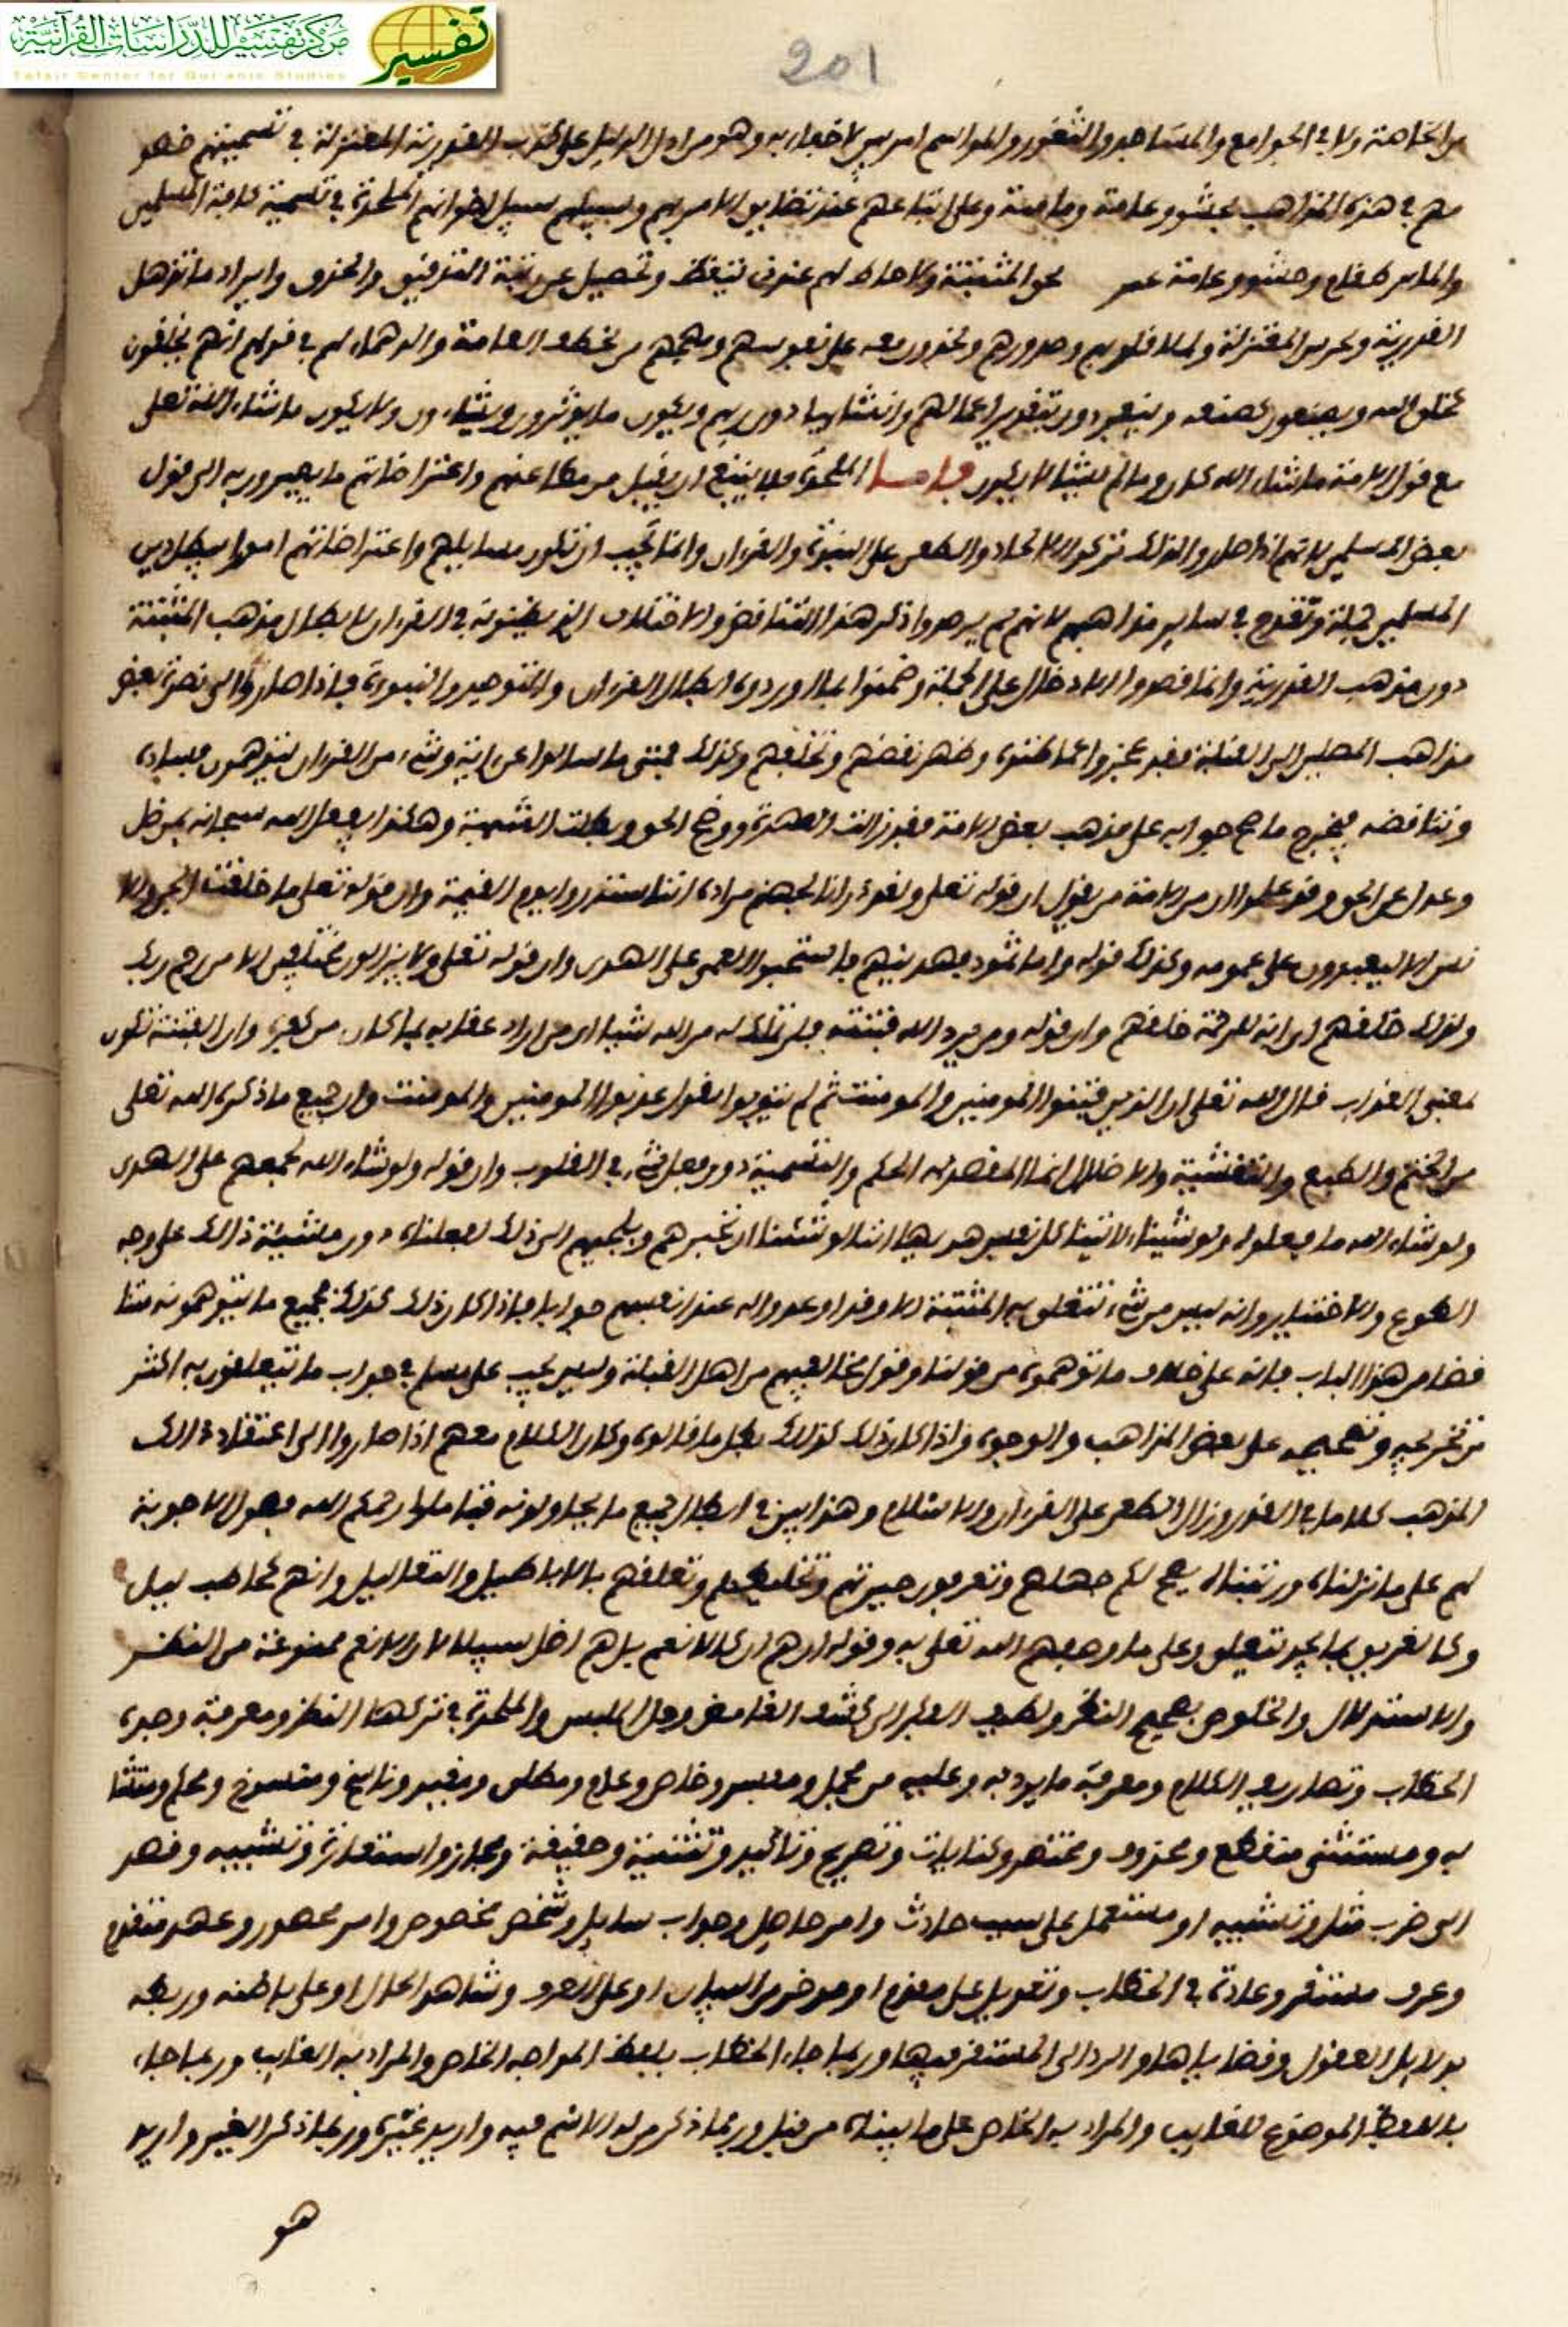 مركز تفسير للدراسات القرآنية
Tafsir Center for Qur'anic Studies
تفسير
201
من الخاصة ولا في الجوامع والمساجد والثغور والمواسم امر بين لا خفاء به وهو من ادل الدليل على كذب القدرية المعتزلة في تسميتهم خصو
مهم في هذه المذاهب بحشو وعامة وعلى اتباعهم عند تضايق الامر بهم وسبيلهم سبيل اخوانهم الملحدة في تسمية كافة المسلمين
والناس وحشو وعامة نحو المثبتة والاحاطة لهم عندي تيقظ وتحصيل عن رتبة التدقيق والحذق وايراد ما تذهل
القدرية وتخرس المعتزلة وتملا قلوبهم وصدورهم ويخذرون معه على نفوسهم ومهجهم من تخطف العامة والدهماء لهم في قولهم انهم يخلقون
كخلق الله ويصنعون كصنعه وينفردون بتقدير اعمالهم وانشايها دون ربهم ويكون ما يوثرون ويشاءون ولا يكون ما شاء الله تعلى
مع قول الامة ما شاء الله كان وما لم يشا لا يكون فاما الملحدة فلا ينبغي ان يقبل من مطاعنهم واعتراضاتهم ما يصيرون به الى قول
بعض المسلمين لانهم اذا صاروا الى ذلك تركوا الالحاد والطعن على النبوة والقرءان وانما يجب ان تكون مسايلهم واعتراضاتهم امورا يبطل دين
المسلمين جملة وتقدح في ساير مذاهبهم لانهم لم يوردوا ذكر هذا التناقض والاختلاف الذي يظنونه في القرءان لابطال مذهب المثبتة
دون مذهب القدرية وانما قصدوا الادخال على الجملة وضمنوا بما اوردوه ابطال القرءان والتوحيد والنبوة فاذا صاروا الى نصرة بعض
مذاهب المصلين الى القبلة فقد عجزوا عما ظنوه وظهر نقضهم وتخلفهم وكذلك فمتى ما سالوا عن ءاية وشيء من القرءان يتوهمون فساده
وتناقضه فيخرج ما صح جوابه على مذهب بعض الامة فقد زالت العهدة ووضح الحق وبطلت الشبهة وهكذا يفعل الله سبحانه بمن ضل
وعدل عن الحق وقد علموا ان من الامة من يقول ان قوله تعلى ولقد ذرانا لجهنم مراده اننا سنذروا يوم القيمة وان قوله تعلى ما خلقت الجن والا
نس الا ليعبدون على عمومه وكذلك قوله واما ثمود فهديناهم فاستحبوا العمى على الهدى وان قوله تعلى ولا يزالون مختلفين الا من رحم ربك
ولذلك خلقهم اي انه للرحمة خلقهم وان قوله ومن يرد الله فتنته فلن تملك له من الله شيئا اي من اراد عقابه بما كان من كفره وان الفتنة تكون
بمعنى العذاب قال الله تعلى ان الذين فتنوا المومنين والمومنت ثم لم يتوبوا يقول عذبوا المومنين والمومنت وان جميع ما ذكره الله تعلى
من الختم والطبع والتغشية والاضلال انما المقصد به الحكم والتسمية دون فعل شيء في القلوب وان قوله ولو شاء الله لجمعهم على الهدى
ولو شاء الله ما فعلوه ولو شينا لاتينا كل نفس هديها اننا لو شئنا ان نجبرهم ونلجيهم الى ذلك لفعلناه دون مشيئة ذلك على وجه
الطوع والاختيار وانه ليس من شيء تتعلق به المثبتة الا وقد اوعدوا له عند انفسهم جوابا فاذا كان ذلك كذلك فجميع ما يتوهمونه تنا
قضا من هذا الباب فانه على خلاف ما توهموه من قولنا وقول مخالفيهم من اهل القبلة وليس يجب على مسلم في جواب ما يتعلقون به اكثر
من تخريجه وتصحيحه على بعض المذاهب والوجوه واذا كان ذلك كذلك بطل ما قالوه وكان الكلام معهم اذا صاروا الى اعتقاد ذلك
المذهب كلاما في القدر وزال الطعن على القرءان والاسلام وهذا بين في ابطال جميع ما يحاولونه فتاملوا رحمكم الله فصول الاجوبة
لهم على ما نزلناه ورتبناه يصح لكم جهلهم وتعرفون حيرتهم وتخليطهم وتعلقهم بالاباطيل والتعاليل وانهم كحاطب ليل
وكالغريق بما يجد يتعلق وعلى ما وصفهم الله تعلى به وقوله ان هم الا كالانعم بل هم اضل سبيلا لان الانعم ممنوعة من النظر
والاستدلال والخلوص بصحيح النظر ولطيف الفكر الى كشف الغامض وحل اللبس والملحدة في تركها النظر ومعرفة وجوه
الخطاب وتصاريف الكلام ومعرفة ما يرد به وعليه من مجمل ومفسر وخاص وعام ومطلق ومقيد وناسخ ومنسوخ ومحكم ومتشا
به ومستثنى منقطع ومحذوف ومختصر وكنايات وتصريح وتاكيد وتثنية وحقيقة ومجاز واستعارة وتشبيه وقصد
الى ضرب مثل وتشبيه او مستعمل على سبب حادث وامر حاصل وجواب سايل وشخص مخصوص وامر محصور وعهد متقدم
وعرف مستقر وعادة في الخطاب وتعويل على مقدم او موخر من البيان او على العرف وشاهد الحال او على باطنه وربطه
بدلايل العقول وقضاياها والرد الى المستقر فيها وربما جاء الخطاب بلفظ المواجه الخاص والمراد به الغايب وربما جاء
باللفظ الموضوع للغايب والمراد به الخاص على ما بيناه من قبل وربما ذكر من له الاسم فيه واريد غيره وربما ذكر الغير واريد
هو